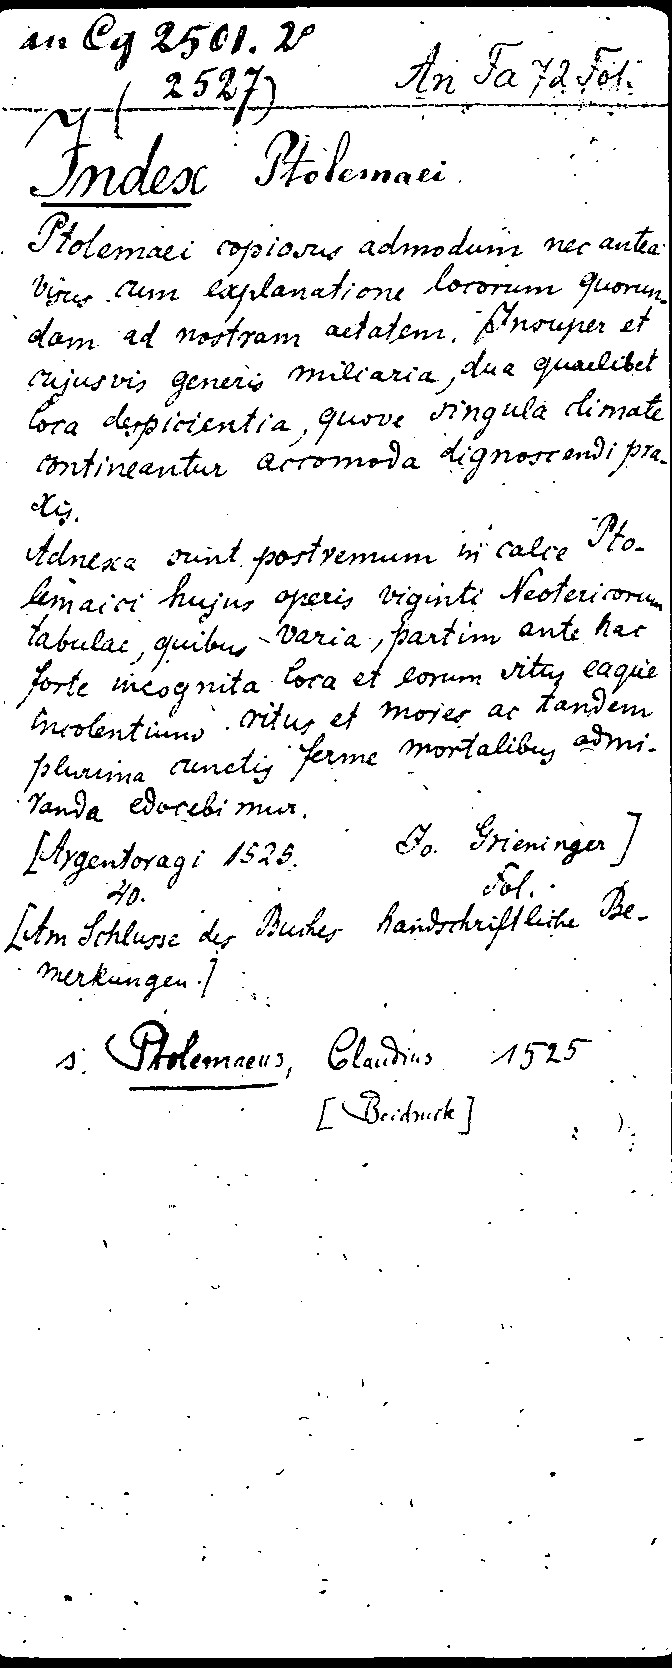 an Cg 2501. 2°
(2527)
An Fa 72 Fol.
Index Ptolemaei.
Ptolemaei copiosus admodum nec antea
visus cum explanatione locorum quorun-
dam ad nostram aetatem. Insuper et
cujusvis generis miliaria, dua quaelibet
loca despicientia, quove singula climate
contineantur accomoda dignoscendi pra-
xis.
Adnexa sunt postremum in calce Pto-
lemaici hujus operis viginti Neotericorum
tabulae, quibus varia, partim ante hac
forte incognita loca et eorum situs eaque
incolentium ritus et mores ac tandem
plurima cunctis ferme mortalibus admi-
randa edocebimur.
[Argentoragi 1525. Jo. Grieninger]
40. Fol.
[Am Schlusse des Buches handschriftliche Be-
merkungen.]
s. Ptolemaeus, Claudius 1525
[Beidruck]